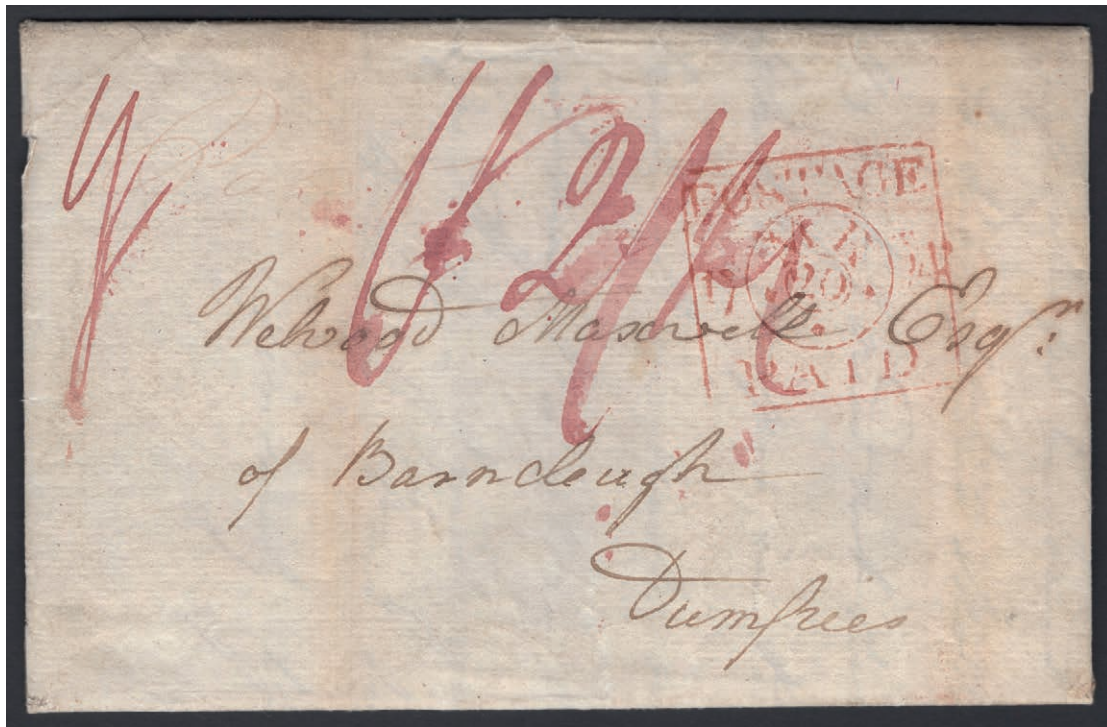 POSTAGE
20
PAID
Welwood Maxwell Esqr:
of Barncleugh
Dumfries